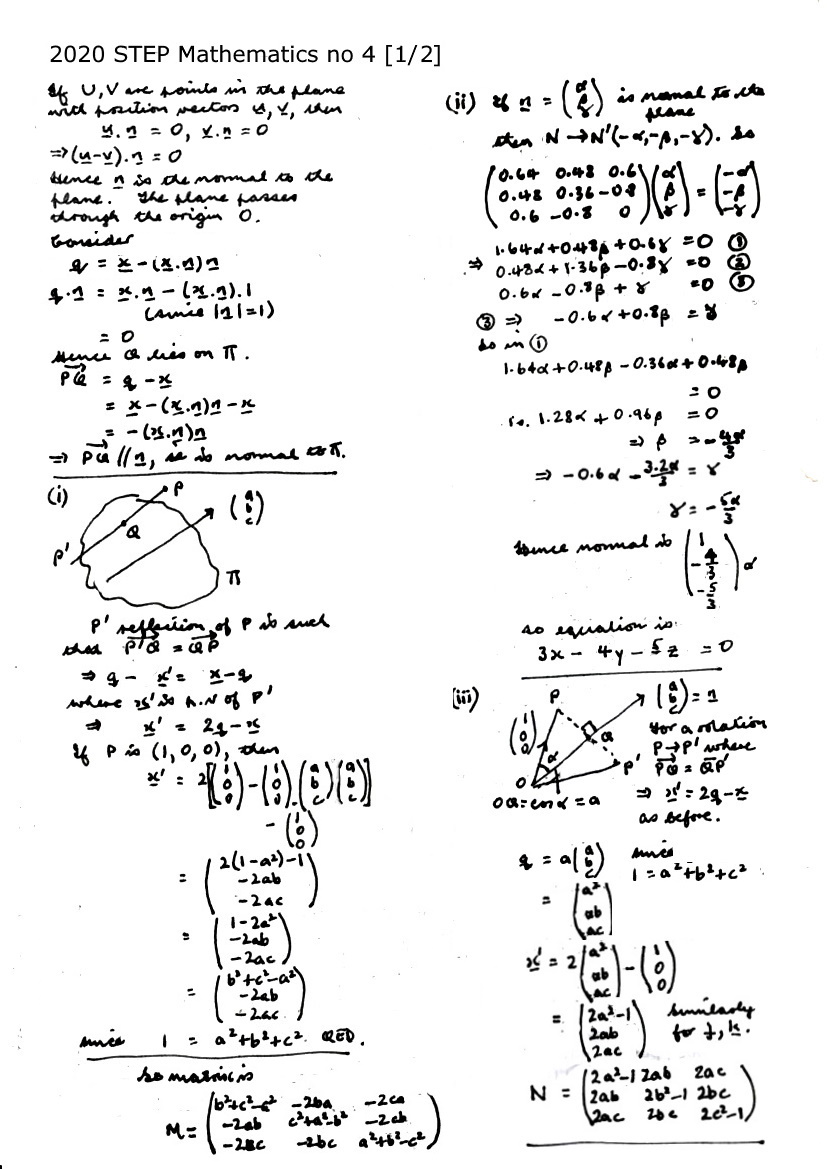 2020 STEP Mathematics no 4 [1/2]
If U, V are points in the plane
with position vectors u, v, then
u.n = 0, v.n = 0
⇒ (u-v).n = 0
Hence n is the normal to the
plane. The plane passes
through the origin O.
Consider
q = x - (x.n)n
q.n = x.n - (x.n).1
(since |n|=1)
= 0
Hence Q lies on π.
PQ = q - x
= x - (x.n)n - x
= -(x.n)n
⇒ PQ // n, ie is normal to π.
(i)
P
Q
P'
(a b c)
π
P' reflection of P is such
that P'Q = QP
⇒ q - x' = x - q
where x' is p.v of P'
⇒ x' = 2q - x
If P is (1,0,0), then
x' = 2[(1 0 0) - (1 0 0).(a b c)(a b c)]
- (1 0 0)
= (2(1-a²)-1 -2ab -2ac)
= (1-2a² -2ab -2ac)
= (b²+c²-a² -2ab -2ac)
since 1 = a²+b²+c². QED.
So matrix is
M = (b²+c²-a² -2ba -2ca
-2ab c²+a²-b² -2cb
-2ac -2bc a²+b²-c²)
(ii) If n = (α β γ) is normal to the
plane
then N → N'(-α,-β,-γ). So
(0.64 0.48 0.6
0.48 0.36 -0.8
0.6 -0.8 0) (α β γ) = (-α -β -γ)
1.64α + 0.48β + 0.6γ = 0 ①
⇒ 0.48α + 1.36β - 0.8γ = 0 ②
0.6α - 0.8β + γ = 0 ③
③ ⇒ -0.6α + 0.8β = γ
So in ①
1.64α + 0.48β - 0.36α + 0.48β
= 0
i.e. 1.28α + 0.96β = 0
⇒ β = -4α/3
⇒ -0.6α - 3.2α/3 = γ
γ = -5α/3
Hence normal is (1 -4/3 -5/3) α
so equation is
3x - 4y - 5z = 0
(iii)
P
(a b c) = n
(1 0 0)
α
Q
P'
O
OQ = cos α = a
For a rotation
P → P' where
PQ = QP'
⇒ x' = 2q - x
as before.
q = a(a b c) since
1 = a²+b²+c²
= (a² ab ac)
x' = 2(a² ab ac) - (1 0 0)
= (2a²-1 2ab 2ac) Similarly
for j, k.
N = (2a²-1 2ab 2ac
2ab 2b²-1 2bc
2ac 2bc 2c²-1)